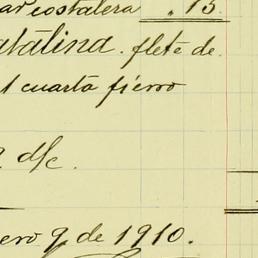 costalera .13
atalina. flete de
1 cuarta fierro
d/c.
ero 9 de 1910.